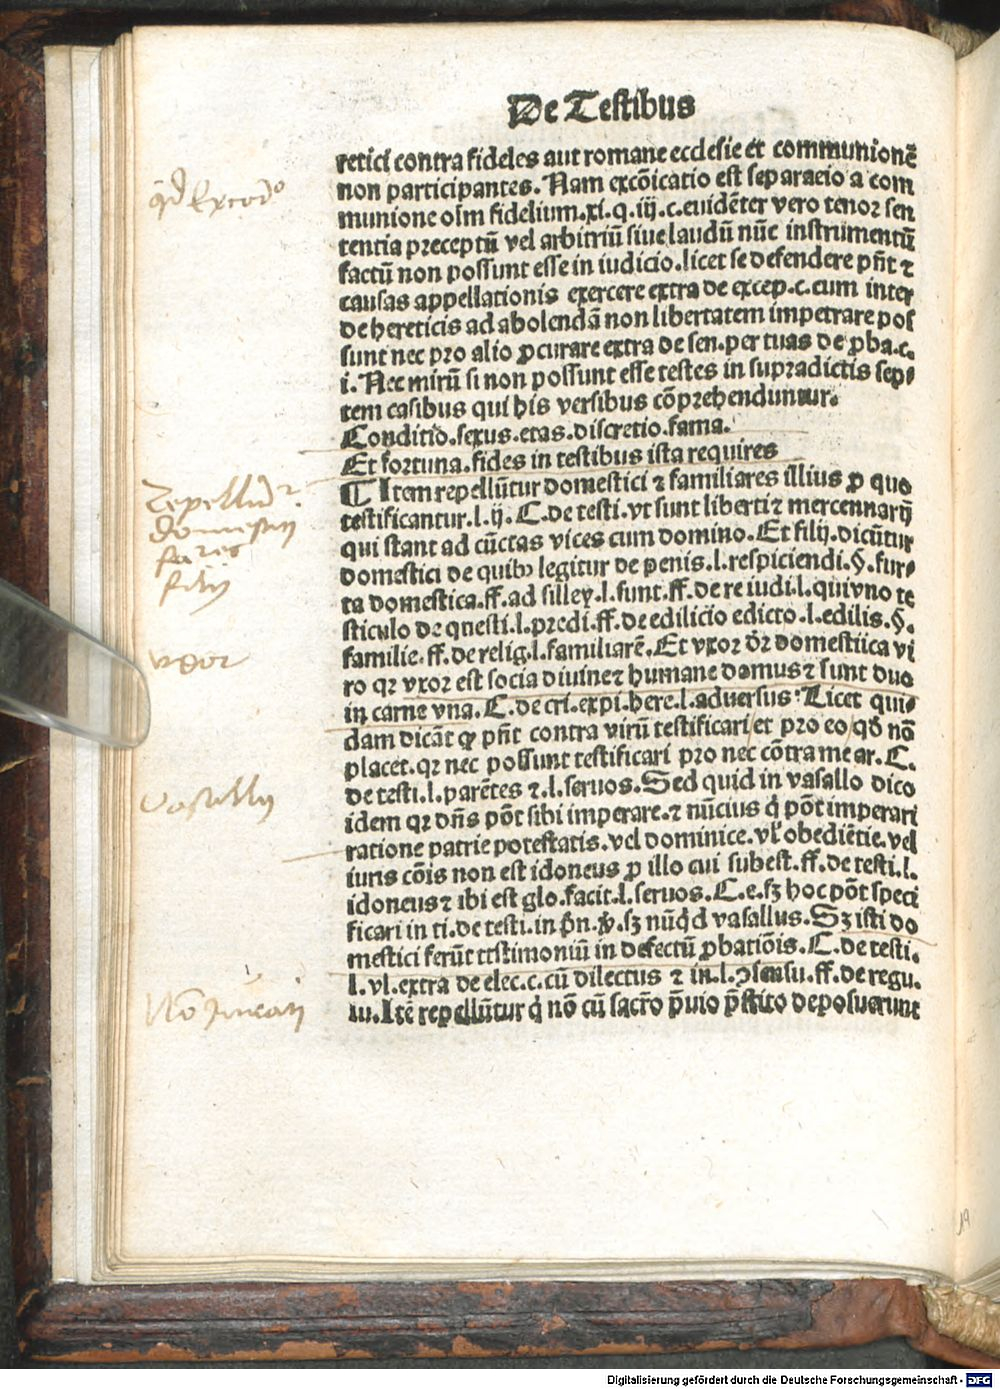 De Testibus
retici contra fideles aut romane ecclesie et communionē
non participantes. Nam excōicatio est separacio a com
munione oīm fidelium.xi.q.iij.c.euidēter vero tenoꝛ sen
tentia preceptū vel arbitriū siue laudū nūc instrumentū
factū non possunt esse in iudicio.licet se defendere pn̄t ⁊
causas appellationis exercere extra de excep.c.cum inter
de hereticis ad abolendā non libertatem impetrare pos
sunt nec pꝛo alio ꝓcurare extra de sen.per tuas de ꝓba.c.
i. Nec mirū si non possunt esse testes in supꝛadictis sep⸗
tem casibus qui his versibus cōpꝛehenduntur.
Conditio.sexus.etas.discretio.fama.
Et foꝛtuna.fides in testibus ista requires
¶ Item repellūtur domestici ⁊ familiares illius ꝓ quo
testificantur.l.ij. C.de testi.vt sunt liberti ⁊ mercennarij
qui stant ad cūctas vices cum domino. Et filij.dicūtur
domestici de quibꝰ legitur de penis.l.respiciendi.§.fur⸗
ta domestica.ff.ad silley.l.sunt.ff.de re iudi.l.quivno te
sticulo de questi.l.pꝛedi.ff.de edilicio edicto.l.edilis.§.
familie.ff.de relig.l.familiarē. Et vxoꝛ dꝛ̄ domestiica vi
ro qꝛ vxoꝛ est socia diuine ⁊ humane domus ⁊ sunt duo
in carne vna. C.de cri.expi.here.l.aduersus: Licet qui⸗
dam dicāt ꝙ pn̄t contra virū testificari et pꝛo eo qd̄ nō
placet.qꝛ nec possunt testificari pꝛo nec cōtra me ar. C.
de testi.l.parētes ⁊.l.seruos. Sed quid in vasallo dico
idem qꝛ dn̄s pōt sibi imperare.⁊ nūcius q̄ pōt imperari
ratione patrie potestatis.vel dominice.vl̄ obediētie.vel
iuris cōis non est idoneus ꝓ illo cui subest.ff.de testi.l.
idoneus ⁊ ibi est glo.facit.l.seruos. C.e.sꝫ hoc pōt speci
ficari in ti.de testi.in p̄n. sꝫ nūqd vasallus. Sꝫ isti do
mestici ferūt testimoniū in defectū ꝓbatiōis. C.de testi.
l.vl.extra de elec.c.cū dilectus ⁊ in.l.ꝯsensu.ff.de regu.
iu. Itē repellūtur q̄ nō cū sacr̄o p̄uio p̄stito deposuerunt
domestici
filij
vxor
Vasallus
19
Digitalisierung gefördert durch die Deutsche Forschungsgemeinschaft - DFG